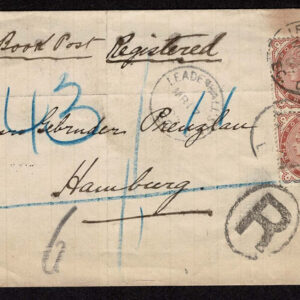 Book Post Registered
43
LEADENHALL
Gebruder Prenzlau
Hamburg.
R